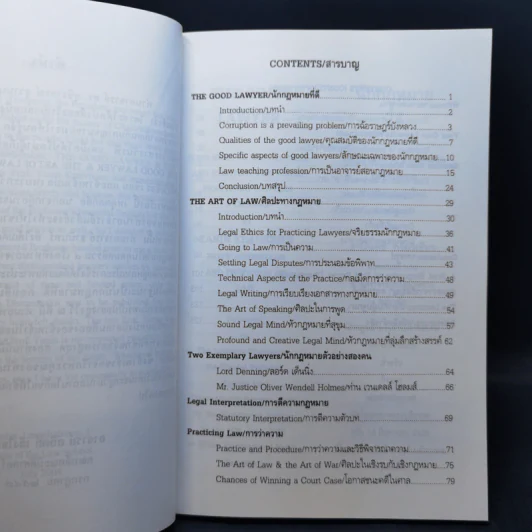 CONTENTS/สารบาญ
THE GOOD LAWYER/นักกฎหมายที่ดี 1
Introduction/บทนำ 2
Corruption is a prevailing problem/การฉ้อราษฎร์บังหลวง 3
Qualities of the good lawyer/คุณสมบัติของนักกฎหมายที่ดี 7
Specific aspects of good lawyers/ลักษณะเฉพาะของนักกฎหมาย 10
Law teaching profession/การเป็นอาจารย์สอนกฎหมาย 15
Conclusion/บทสรุป 24
THE ART OF LAW/ศิลปะทางกฎหมาย 29
Introduction/บทนำ 30
Legal Ethics for Practicing Lawyers/จริยธรรมนักกฎหมาย 36
Going to Law/การเป็นความ 41
Settling Legal Disputes/การประนอมข้อพิพาท 43
Technical Aspects of the Practice/กลเม็ดการว่าความ 48
Legal Writing/การเรียบเรียงเอกสารทางกฎหมาย 49
The Art of Speaking/ศิลปะในการพูด 54
Sound Legal Mind/หัวกฎหมายที่สุขุม 57
Profound and Creative Legal Mind/หัวกฎหมายที่ลุ่มลึกสร้างสรรค์ 62
Two Exemplary Lawyers/นักกฎหมายตัวอย่างสองคน
Lord Denning/ลอร์ด เด็นนิ่ง 64
Mr. Justice Oliver Wendell Holmes/ท่าน เวนเดลล์ โฮลมส์ 66
Legal Interpretation/การตีความกฎหมาย
Statutory Interpretation/การตีความตัวบท 69
Practicing Law/การว่าความ
Practice and Procedure/การว่าความและวิธีพิจารณาความ 71
The Art of Law & the Art of War/ศิลปะในเชิงรบกับเชิงกฎหมาย 75
Chances of Winning a Court Case/โอกาสชนะคดีในศาล 79